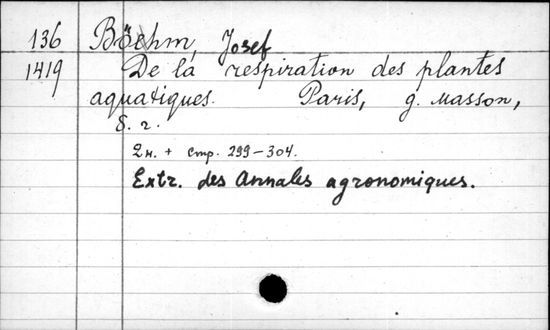 136 Böehm, Josef
1419 De la respiration des plantes
aquatiques. Paris, g. Masson,
б. г.
2н. + стр. 299-304.
Extr. des Annales agronomiques.